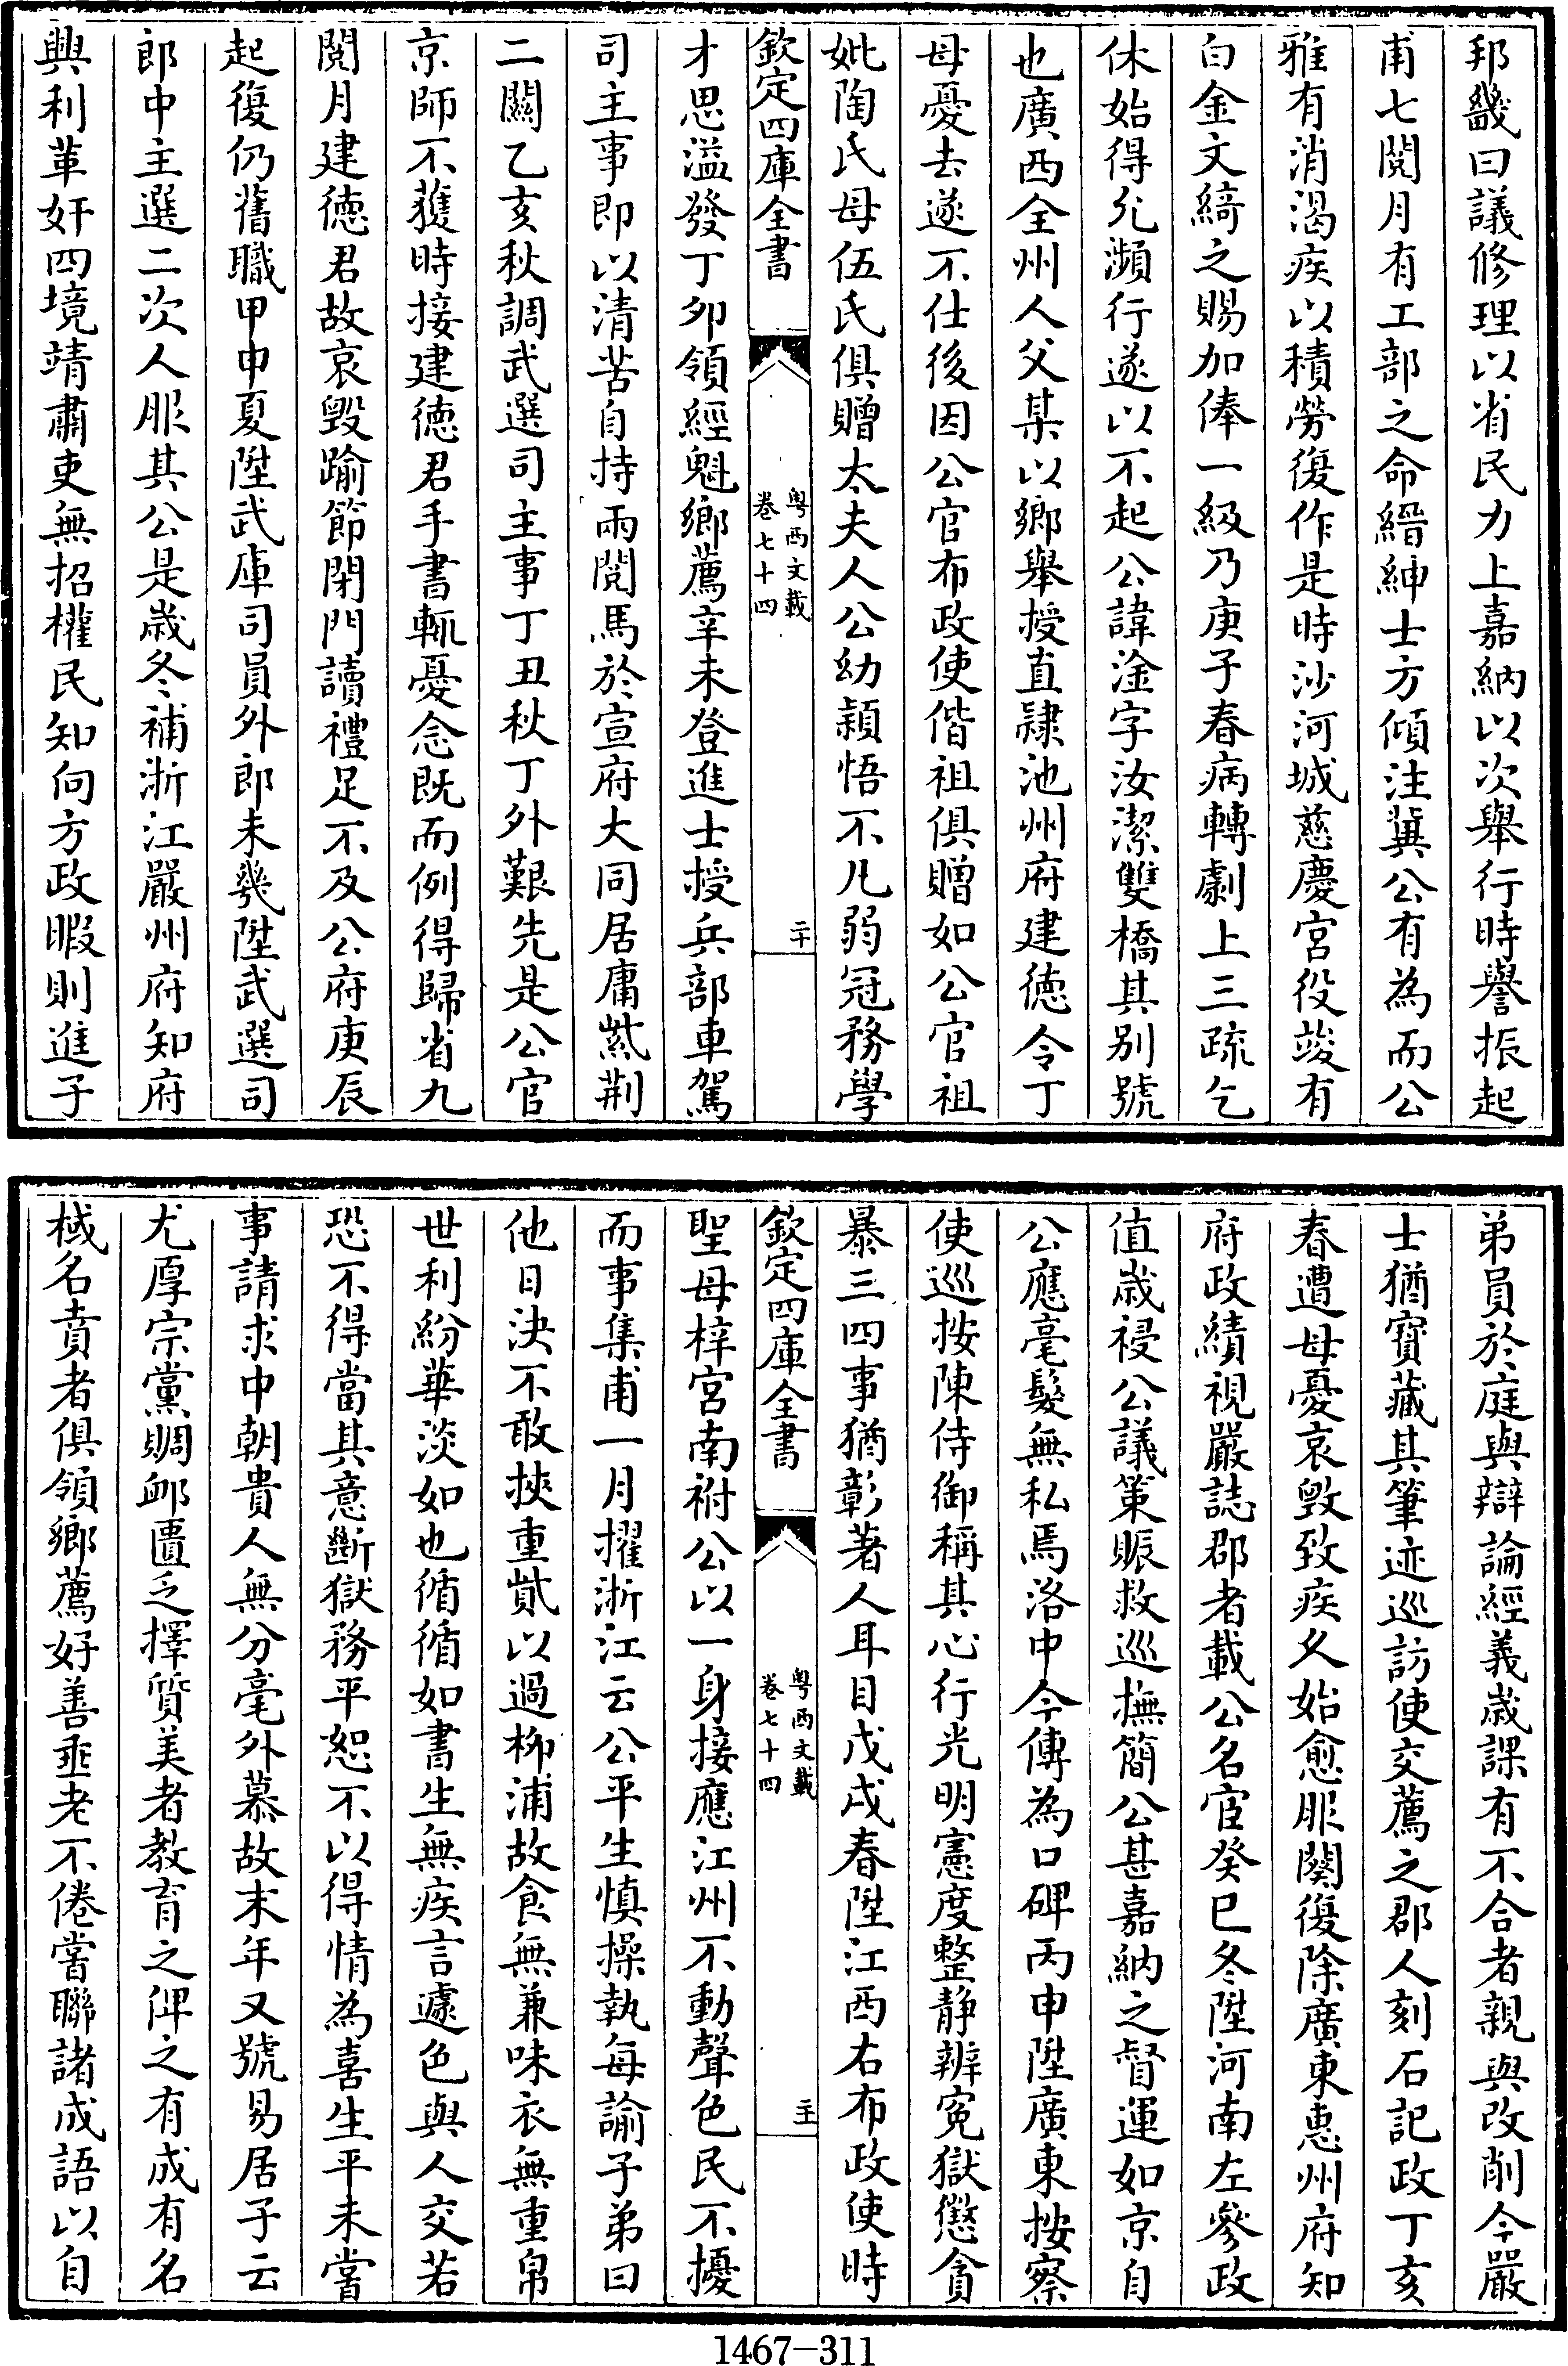 邦畿曰議修理以省民力上嘉納以次舉行時譽振起
甫七閱月有工部之命縉紳士方傾注冀公有為而公
雅有消渴疾以積勞復作是時沙河城慈慶宮役竣有
白金文綺之賜加俸一級乃庚子春病轉劇上三疏乞
休始得允瀕行遂以不起公諱淦字汝潔雙橋其别號
也廣西全州人父某以鄉舉授直隸池州府建徳令丁
母憂去遂不仕後因公官布政使偕祖俱贈如公官祖
妣陶氏母伍氏俱贈太夫人公幼穎悟不凡弱冠務學
欽定四庫全書
粤西文載
卷七十四
二十
才思溢發丁夘領經魁鄉薦辛未登進士授兵部車駕
司主事即以清苦自持兩閲馬於宣府大同居庸紫荆
二關乙亥秋調武選司主事丁丑秋丁外艱先是公官
京師不獲時接建徳君手書輒憂念既而例得歸省九
閲月建徳君故哀毁踰節閉門讀禮足不及公府庚辰
起復仍舊職甲申夏陞武庫司員外郎未幾陞武選司
郎中主選二次人服其公是嵗冬補浙江嚴州府知府
興利革奸四境靖肅吏無招權民知向方政暇則進子
弟員於庭與辯論經義嵗課有不合者親與改削今嚴
士猶寳藏其筆迹巡訪使交薦之郡人刻石記政丁亥
春遭母憂哀毁致疾久始愈服闋復除廣東惠州府知
府政績視嚴誌郡者載公名宦癸巳冬陞河南左參政
值嵗祲公議策賑救巡撫簡公甚嘉納之督運如京自
公應毫髮無私焉洛中今傳為口碑丙申陞廣東按察
使巡按陳侍御稱其心行光明憲度整静辨寃獄懲貪
暴三四事猶彰著人耳目戊戌春陞江西右布政使時
欽定四庫全書
粤西文載
卷七十四
二十一
聖母梓宮南祔公以一身接應江州不動聲色民不擾
而事集甫一月擢浙江云公平生慎操執每諭子弟曰
他日決不敢挾重貲以過柳浦故食無兼味衣無重帛
世利紛華淡如也循循如書生無疾言遽色與人交若
恐不得當其意斷獄務平恕不以得情為喜生平未嘗
事請求中朝貴人無分毫外慕故末年又號易居子云
尤厚宗黨賙䘏匱乏擇質美者教育之俾之有成有名
棫名賁者俱領鄉薦好善垂老不倦嘗聯諸成語以自
1467-311